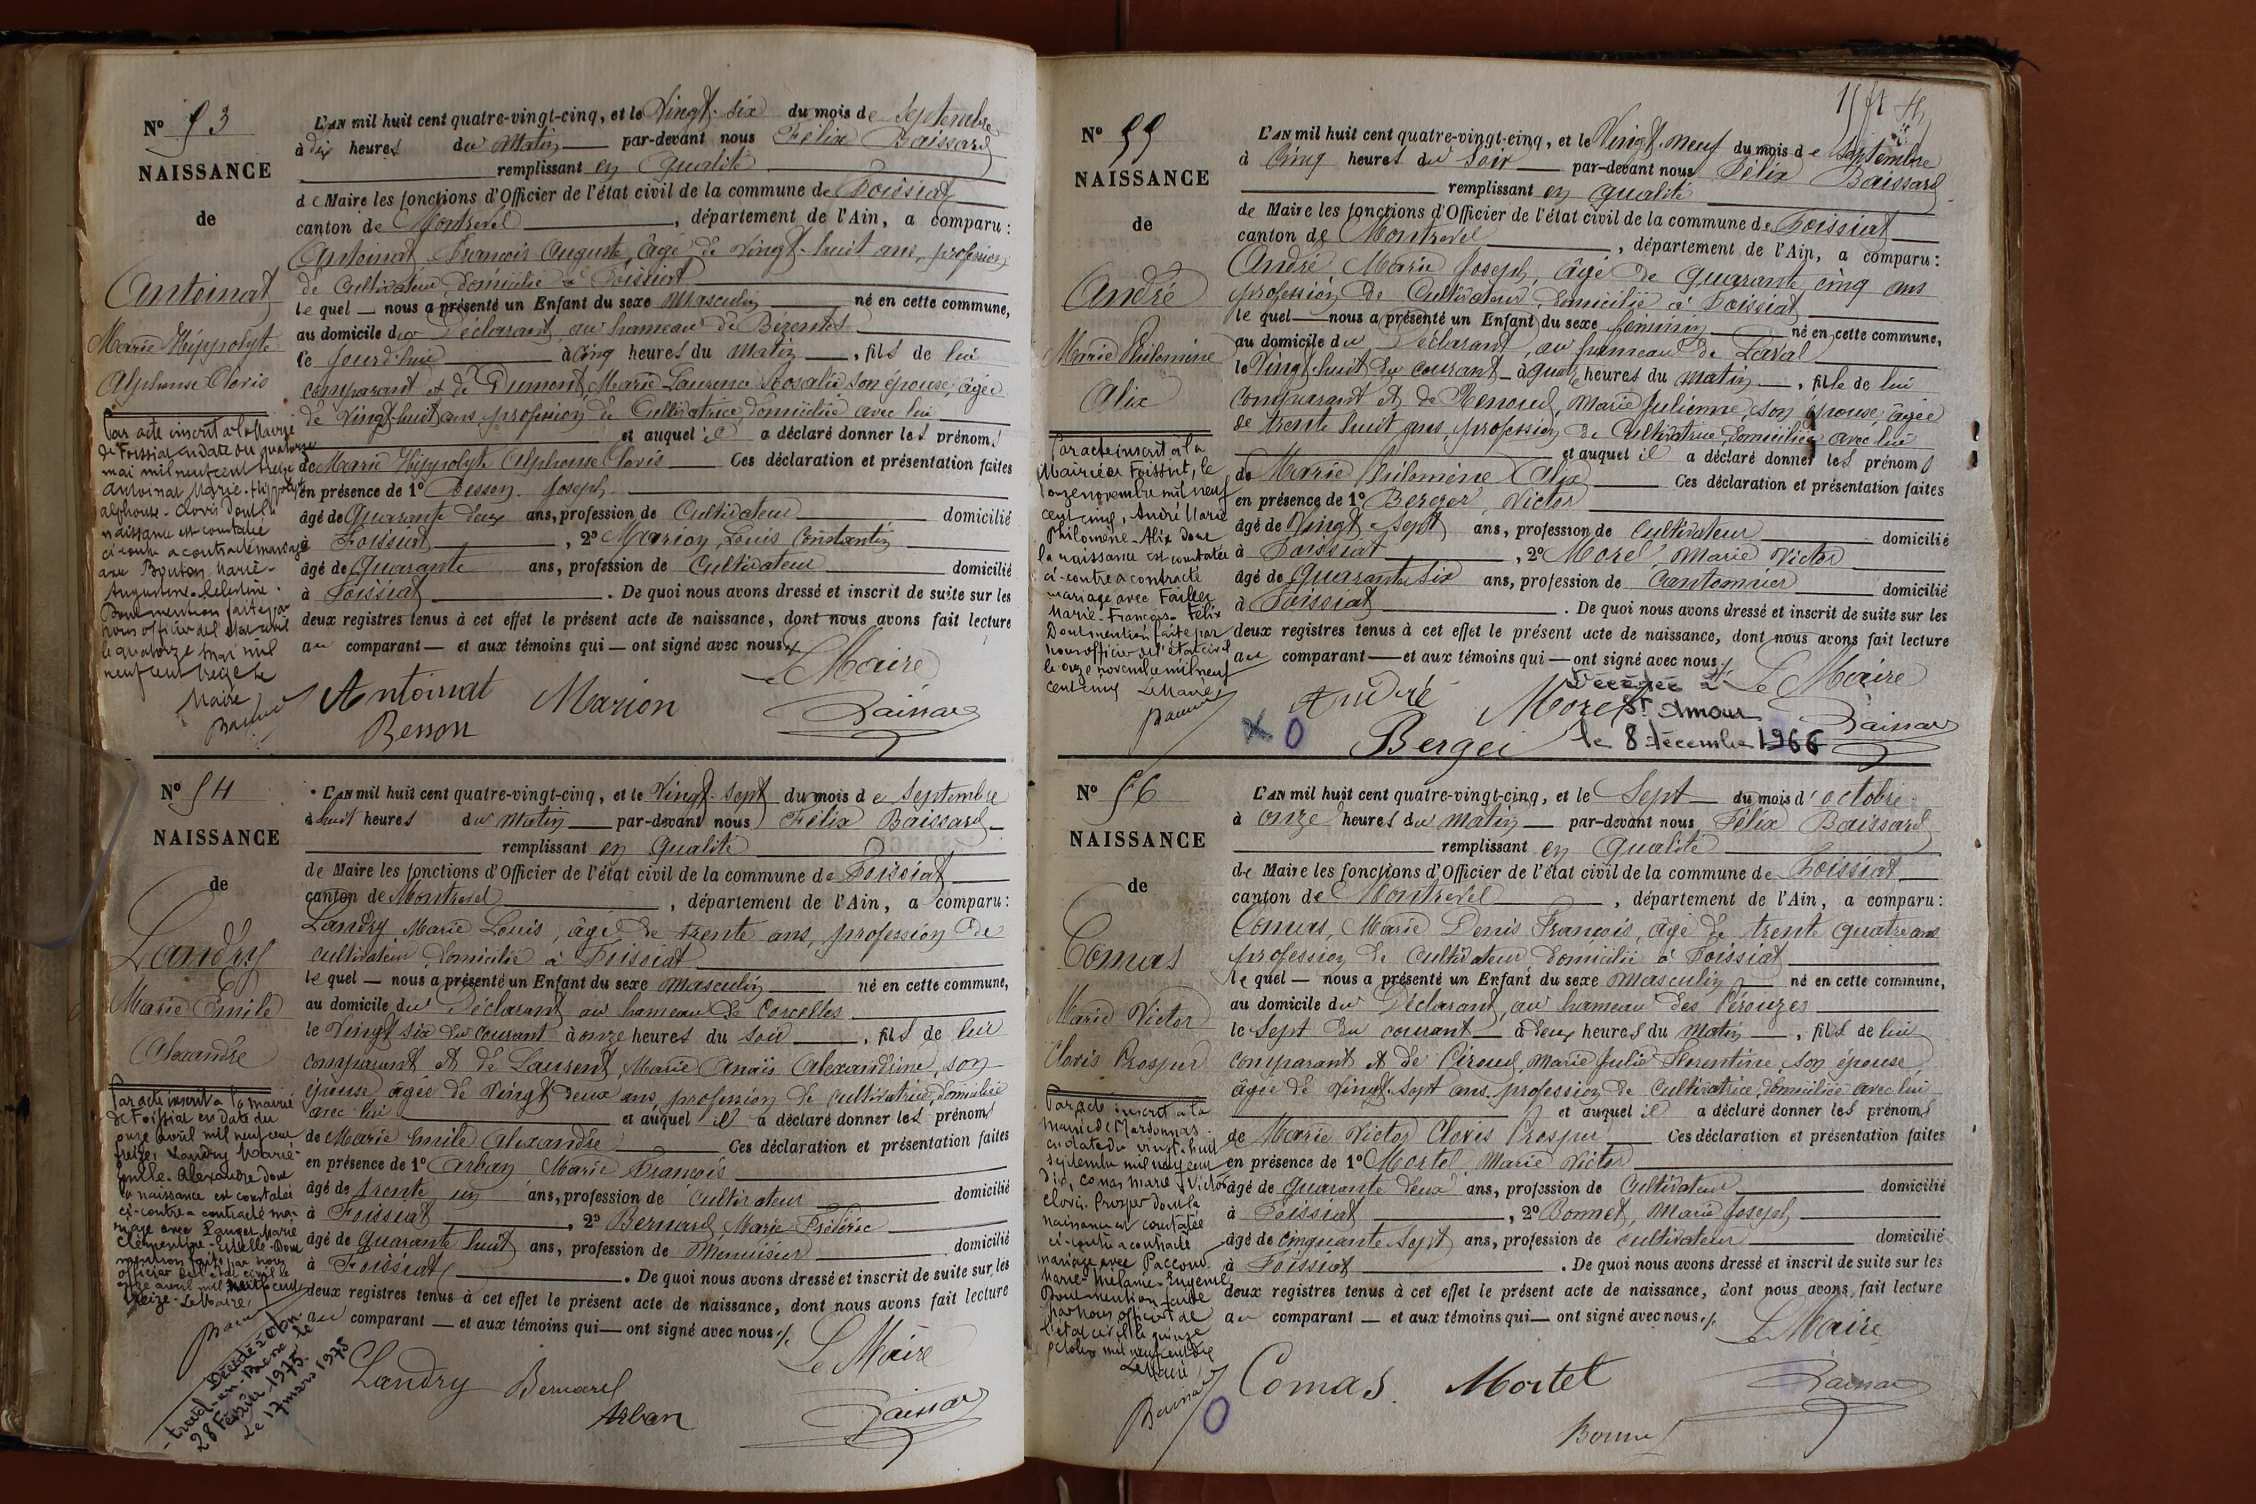 N° 53
NAISSANCE
de
Antoinat
Marie Hippolyte
Alphonse Clovis
Par acte inscrit à la Mairie
de Foissiat en date du quatorze
mai mil neuf cent treize
Antoinat Marie-Hippolyte
Alphonse-Clovis dont la
naissance est constatée
ci-contre a contracté mariage
avec Bouton Marie-
Augustine-Célestine.
Dont mention faite par
nous officier de l'état civil
le quatorze mai mil
neuf cent treize Le
Maire
L'AN mil huit cent quatre-vingt-cinq, et le Vingt-six du mois de Septembre
à dix heures du Matin par-devant nous Félix Baissard
remplissant en qualité
de Maire les fonctions d'Officier de l'état civil de la commune de Foissiat
canton de Montrevel, département de l'Ain, a comparu:
Antoinat François Auguste, âgé de Vingt-huit ans, profession
de Cultivateur domicilié à Foissiat
le quel — nous a présenté un Enfant du sexe Masculin né en cette commune,
au domicile du Déclarant, au hameau de
le jourd'hui à cinq heures du Matin, fils de lui
comparant et de Dumont, Marie Laurence Rosalie son épouse, âgée
de Vingt-huit ans, profession de Cultivatrice domiciliée avec lui
et auquel il a déclaré donner les prénoms
de Marie Hippolyte Alphonse Clovis Ces déclaration et présentation faites
en présence de 1° Besson Joseph
âgé de Quarante deux ans, profession de Cultivateur domicilié
à Foissiat, 2° Marion Louis Constantin
âgé de Quarante ans, profession de Cultivateur domicilié
à Foissiat. De quoi nous avons dressé et inscrit de suite sur les
deux registres tenus à cet effet le présent acte de naissance, dont nous avons fait lecture
au comparant — et aux témoins qui — ont signé avec nous
Le Maire
Antoinat Marion
Besson
N° 54
NAISSANCE
de
Landry
Marie Emile
Alexandre
Par acte inscrit à la mairie
de Foissiat en date du
onze avril mil neuf cent
treize, Landry Marie-
Emile-Alexandre dont
la naissance est constatée
ci-contre a contracté ma-
riage avec Marie
Clémentine-Estelle-Dont
mention faite par nous
officier de l'état civil le
onze avril mil neuf cent
treize-Le Maire
28 Février 1975.
Le 17 mars 1975
L'AN mil huit cent quatre-vingt-cinq, et le Vingt-Sept du mois de Septembre
à huit heures du Matin par-devant nous Félix Baissard
remplissant en qualité
de Maire les fonctions d'Officier de l'état civil de la commune de Foissiat
canton de Montrevel, département de l'Ain, a comparu:
Landry Marie Louis, âgé de trente ans, profession de
cultivateur, domicilié à Foissiat
le quel — nous a présenté un Enfant du sexe masculin né en cette commune,
au domicile du Déclarant, au hameau de Corcelles
le Vingt six du courant à onze heures du Soir, fils de lui
comparant et de Laurent Marie Anaïs Alexandrine, son
épouse âgée de Vingt deux ans, profession de cultivatrice, domiciliée
avec lui et auquel il a déclaré donner les prénoms
de Marie Emile Alexandre Ces déclaration et présentation faites
en présence de 1° Arban Marie François
âgé de trente un ans, profession de cultivateur domicilié
à Foissiat, 2° Bernard Marie Frédéric
âgé de quarante huit ans, profession de Menuisier domicilié
à Foissiat. De quoi nous avons dressé et inscrit de suite sur les
deux registres tenus à cet effet le présent acte de naissance, dont nous avons fait lecture
au comparant — et aux témoins qui — ont signé avec nous
Le Maire
Landry Bernard
Arban
N° 55
NAISSANCE
de
André
Marie Philomène
Alix
Par acte inscrit à la
Mairie de Foissiat, le
onze novembre mil neuf
cent cinq, André Marie
Philomène-Alix dont
la naissance est constatée
ci-contre a contracté
mariage avec
Marie-François-Félix
Dont mention faite par
nous officier de l'état civil
le onze novembre mil neuf
cent cinq Le Maire
L'AN mil huit cent quatre-vingt-cinq, et le Vingt-neuf du mois de Septembre
à Cinq heures du Soir par-devant nous Félix Baissard
remplissant en qualité
de Maire les fonctions d'Officier de l'état civil de la commune de Foissiat
canton de Montrevel, département de l'Ain, a comparu:
André Marie Joseph, âgé de Quarante cinq ans
profession de Cultivateur, domicilié à Foissiat
le quel — nous a présenté un Enfant du sexe féminin né en cette commune,
au domicile du Déclarant, au hameau de Laval
le Vingt-huit du courant à quatre heures du Matin, fille de lui
comparant et de Renoud, Marie Julienne, son épouse âgée
de trente huit ans, profession de Cultivatrice domiciliée avec lui
et auquel il a déclaré donner les prénoms
de Marie Philomène Alix Ces déclaration et présentation faites
en présence de 1° Berger Victor
âgé de Vingt-Sept ans, profession de cultivateur domicilié
à Foissiat, 2° Morel, Marie Victor
âgé de Quarante Six ans, profession de Cantonnier domicilié
à Foissiat. De quoi nous avons dressé et inscrit de suite sur les
deux registres tenus à cet effet le présent acte de naissance, dont nous avons fait lecture
au comparant — et aux témoins qui — ont signé avec nous
Le Maire
André Morel
Décédée à
St Amour
le 8 décembre 1966
Berger
N° 56
NAISSANCE
de
Comas
Marie Victor
Clovis Prosper
Par acte inscrit à la
mairie de Marsonnas
en date du vingt-huit
septembre mil neuf cent
dix, Comas Marie-Victor
Clovis-Prosper dont la
naissance est constatée
ci-contre a contracté
mariage avec Paccoud
Marie-Mélanie-Eugénie
Dont mention faite
par nous officier de
l'état civil le quinze
octobre mil neuf cent dix
Le Maire
L'AN mil huit cent quatre-vingt-cinq, et le Sept du mois d'octobre
à onze heures du Matin par-devant nous Félix Baissard
remplissant en qualité
de Maire les fonctions d'Officier de l'état civil de la commune de Foissiat
canton de Montrevel, département de l'Ain, a comparu:
Comas, Marie Denis François, âgé de trente quatre ans
profession de Cultivateur domicilié à Foissiat
le quel — nous a présenté un Enfant du sexe masculin né en cette commune,
au domicile du Déclarant, au hameau des Pérouzes
le Sept du courant à deux heures du Matin, fils de lui
comparant et de Péroud, Marie Julie Florentine son épouse,
âgée de Vingt-Sept ans, profession de Cultivatrice, domiciliée avec lui
et auquel il a déclaré donner les prénoms
de Marie Victor Clovis Prosper Ces déclaration et présentation faites
en présence de 1° Mortel, Marie Victor
âgé de Quarante deux ans, profession de Cultivateur domicilié
à Foissiat, 2° Bonnet, Marie Joseph
âgé de cinquante Sept ans, profession de cultivateur domicilié
à Foissiat. De quoi nous avons dressé et inscrit de suite sur les
deux registres tenus à cet effet le présent acte de naissance, dont nous avons fait lecture
au comparant — et aux témoins qui — ont signé avec nous
Le Maire
Comas Mortel